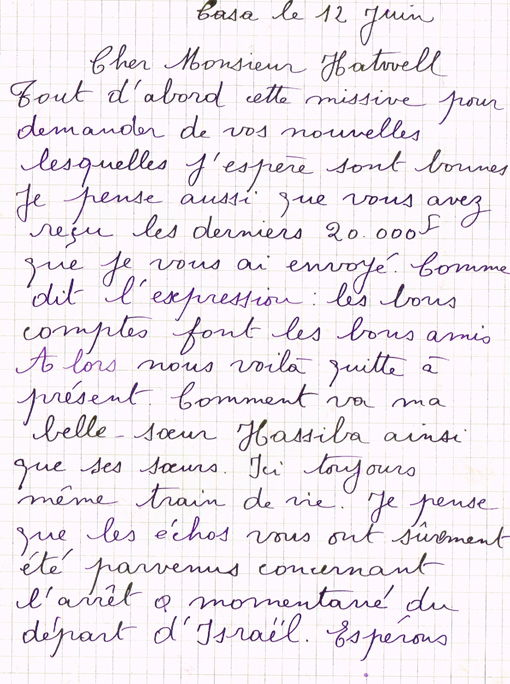 Casa le 12 Juin
Cher Monsieur Hatwell
Tout d'abord cette missive pour
demander de vos nouvelles
lesquelles j'espère sont bonnes
Je pense aussi que vous avez
reçu les derniers 20.000f
que je vous ai envoyé. Comme
dit l'expression : les bons
comptes font les bons amis
Alors nous voilà quitte à
présent. Comment va ma
belle-sœur Hassiba ainsi
que ses sœurs. Ici toujours
même train de vie. Je pense
que les échos vous ont sûrement
été parvenus concernant
l'arrêt momentané du
départ d'Israël. Espérons